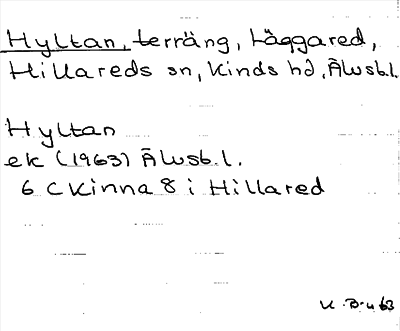 Hyltan, terräng, Häggared,
Hillareds sn, Kinds hd, Älvsb.l.
Hyltan
ek (1963) Älvsb.l.
6 C Kinna 8 i Hillared